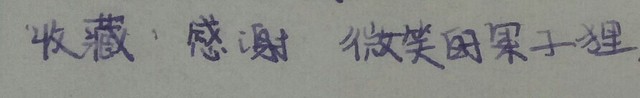 收藏,感谢 微笑的果子狸